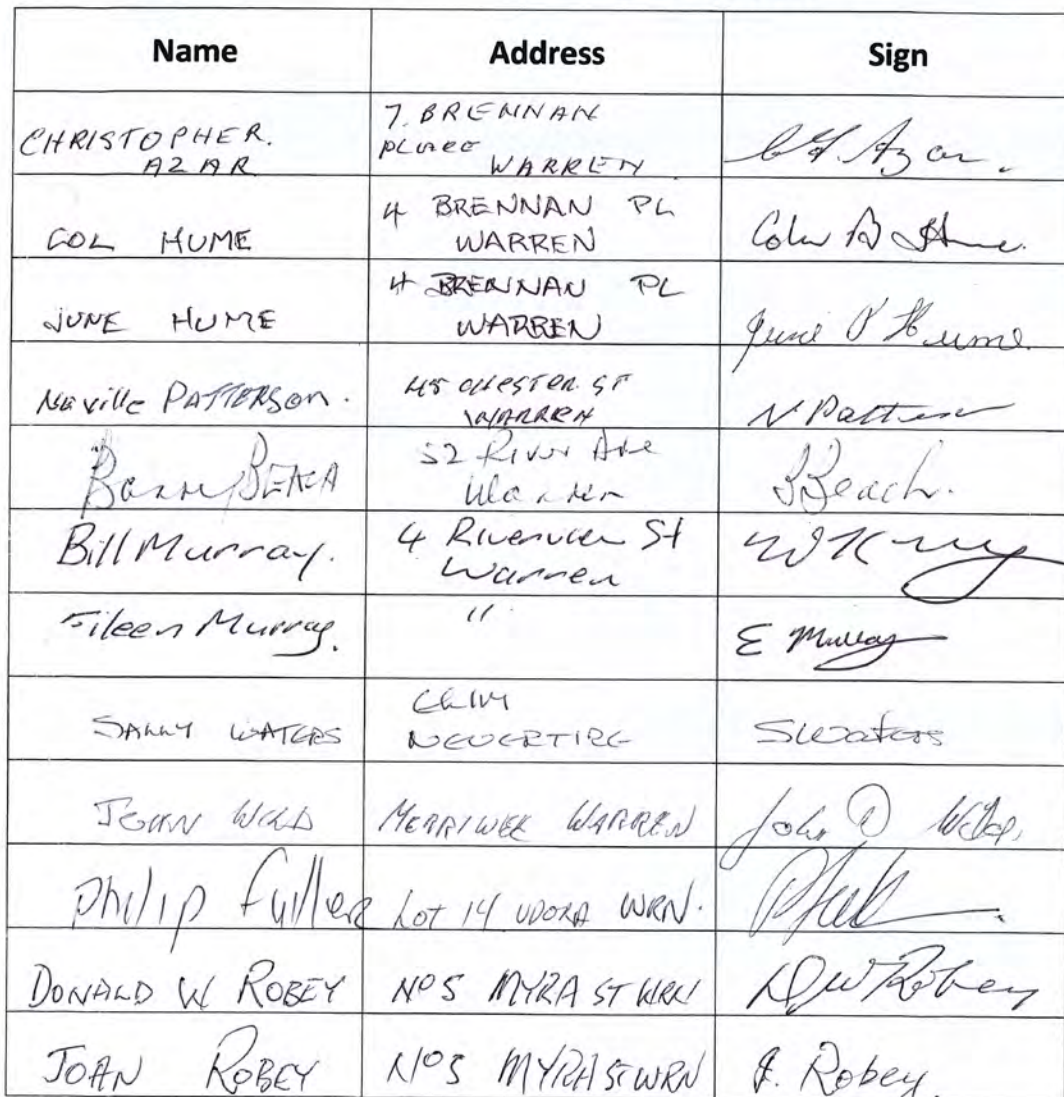 Name Address Sign
CHRISTOPHER. 7. BRENNAN
AZAR PLACE
WARREN Azar.
COL HUME 4 BRENNAN PL
WARREN Colin B Hume.
JUNE HUME 4 BRENNAN PL
WARREN June P Hume.
Neville PATTERSON. 48 CHESTER ST
WARREN N Patterson
Barry BEACH 52 River Ave
Warren BBeach.
Bill Murray. 4 Riverview St
Warren
Eileen Murray. " E Murray
SALLY WATERS
NEVERTIRE SWaters
JOHN MERRIWEE WARREN John D
Philip Fuller Lot 14 UDORA WRN.
DONALD W ROBEY NO5 MYRA ST WRN DW Robey
JOAN ROBEY NO5 MYRA ST WRN J. Robey.